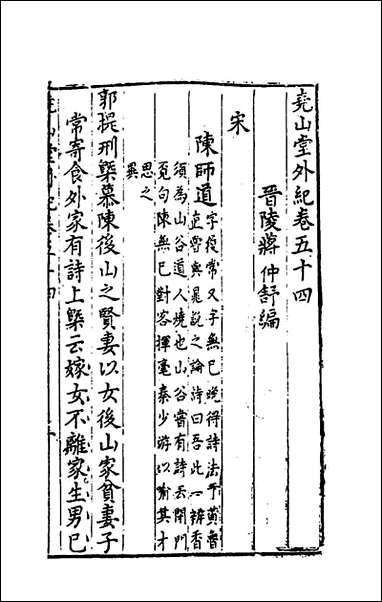 堯山堂外紀卷五十四
晋陵蔣仲舒編
宋
陳師道字履常又字無已晚得詩法于黄魯
直嘗與晁說之論詩曰吾此一辨香
須為山谷道人燒也山谷嘗有詩云閉門
覓句陳無已對客揮毫秦少游以喻其才
思之
異
郭提刑槩慕陳後山之賢妻以女後山家貧妻子
常寄食外家有詩上槩云嫁女不離家生男已
堯山堂外紀卷五十四
一